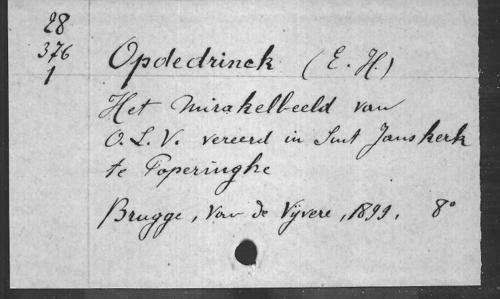 28
376
1
Opdedrinck (E. H.)
Het mirakelbeeld van
O. L. V. vereerd in Sint Janskerk
te Poperinghe
Brugge, Van de Vyvere, 1899. 8°